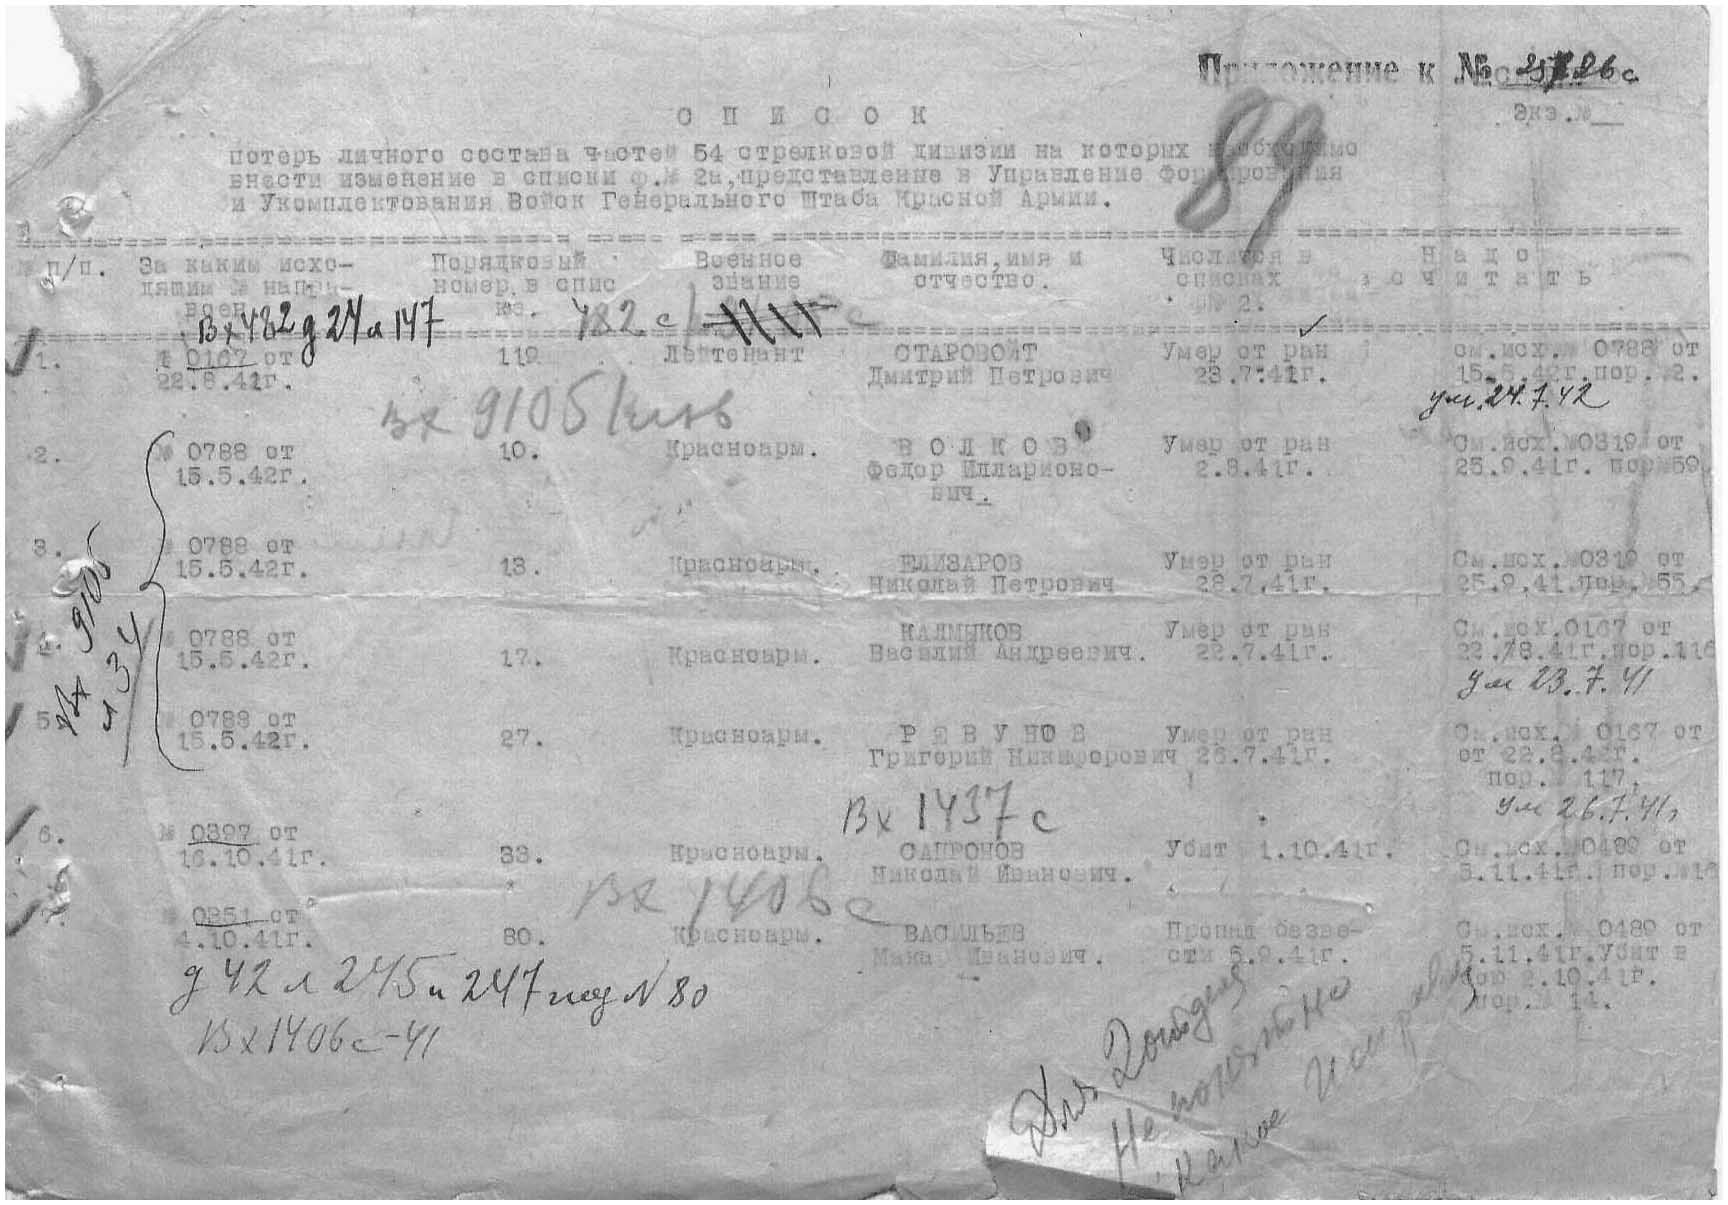 Приложение к №
Экз.№
С П И С О К
потерь личного состава частей 54 стрелковой дивизии на которых необходимо
внести изменение в списки ф.№ 2а, представление в Управление Формирования
и Укомплектования Войск Генерального Штаба Красной Армии.
№ п/п. За каким исхо- Порядковый Военное Фамилия, имя и Числится в Н а д о
дящим № напра- номер в спис звание отчество. списках з с ч и т а т ь
влен ке. 482 с № 2.
Вх 482 д 24 л 147
1. № 0167 от 119. Лейтенант СТАРОВОЙТ Умер от ран см.исх.№ 0788 от
22.8.41г. Дмитрий Петрович 23.7.41г. 15.5.42г.пор.№2.
ум. 24.7.42
Вх 9105
2. № 0788 от 10. Красноарм. В О Л К О В Умер от ран См.исх.№0319 от
15.5.42г. Федор Илларионо- 2.8.41г. 25.9.41г. пор№59
вич.
3. № 0788 от
15.5.42г. 13. Красноарм. ЕЛИЗАРОВ Умер от ран См.исх.№0319 от
Николай Петрович 28.7.41г. 25.9.41.пор.№55.
Вх 9105
л 34
4. № 0788 от КАЛМЫКОВ Умер от ран См.исх.0167 от
15.5.42г. 17. Красноарм. Василий Андреевич. 22.7.41г. 22.8.41г.пор.116
ум 23.7.41
5. № 0788 от Р Е В У Н О В Умер от ран См.исх.№ 0167 от
15.5.42г. 27. Красноарм. Григорий Никифорович 26.7.41г. от 22.8.42г.
пор.№ 117.
ум 26.7.41г
Вх 1437 с
6. № 0397 от САПРОНОВ Убит 1.10.41г. См.исх.№0489 от
16.10.41г. 33. Красноарм. Николай Иванович. 5.11.41г. пор.№16
Вх 1406 с
7. № 0351 от ВАСИЛЬЕВ Пропал безве- См.исх.№ 0489 от
4.10.41г. 80. Красноарм. Макар Иванович. сти 5.9.41г. 5.11.41г.Убит в
бою 2.10.41г.
пор.№ 14.
д 42 л 245 и 247 под N 80
Вх 1406 с-41
Для 2 отдела
Не понятно
какое
89